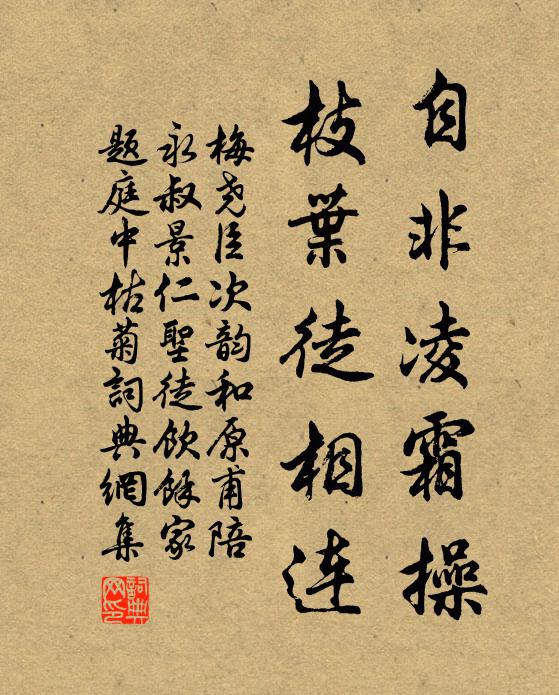 自非凌霜操
枝葉徒相連
梅堯臣次韵和原甫陪
永叔景仁聖徒飲餘家
題庭中枯菊詞典網集
詞典
网印